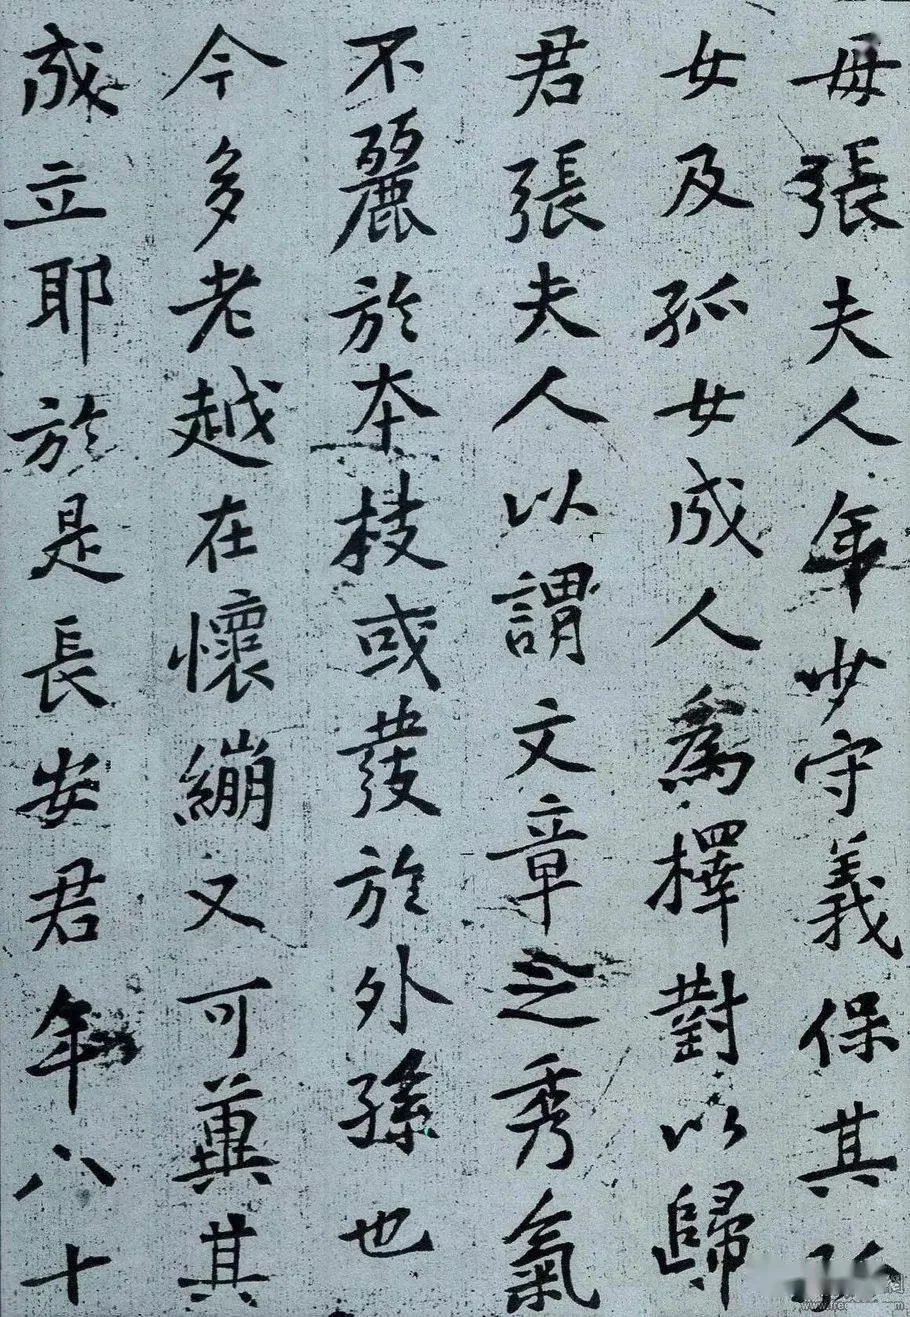 母張夫人年少守義保其孤
女及孤女成人爲擇對以歸
君張夫人以謂文章之秀氣
不麗於本枝或發於外孫也
今多老越在懷繃又可冀其
成立耶於是長安君年八十